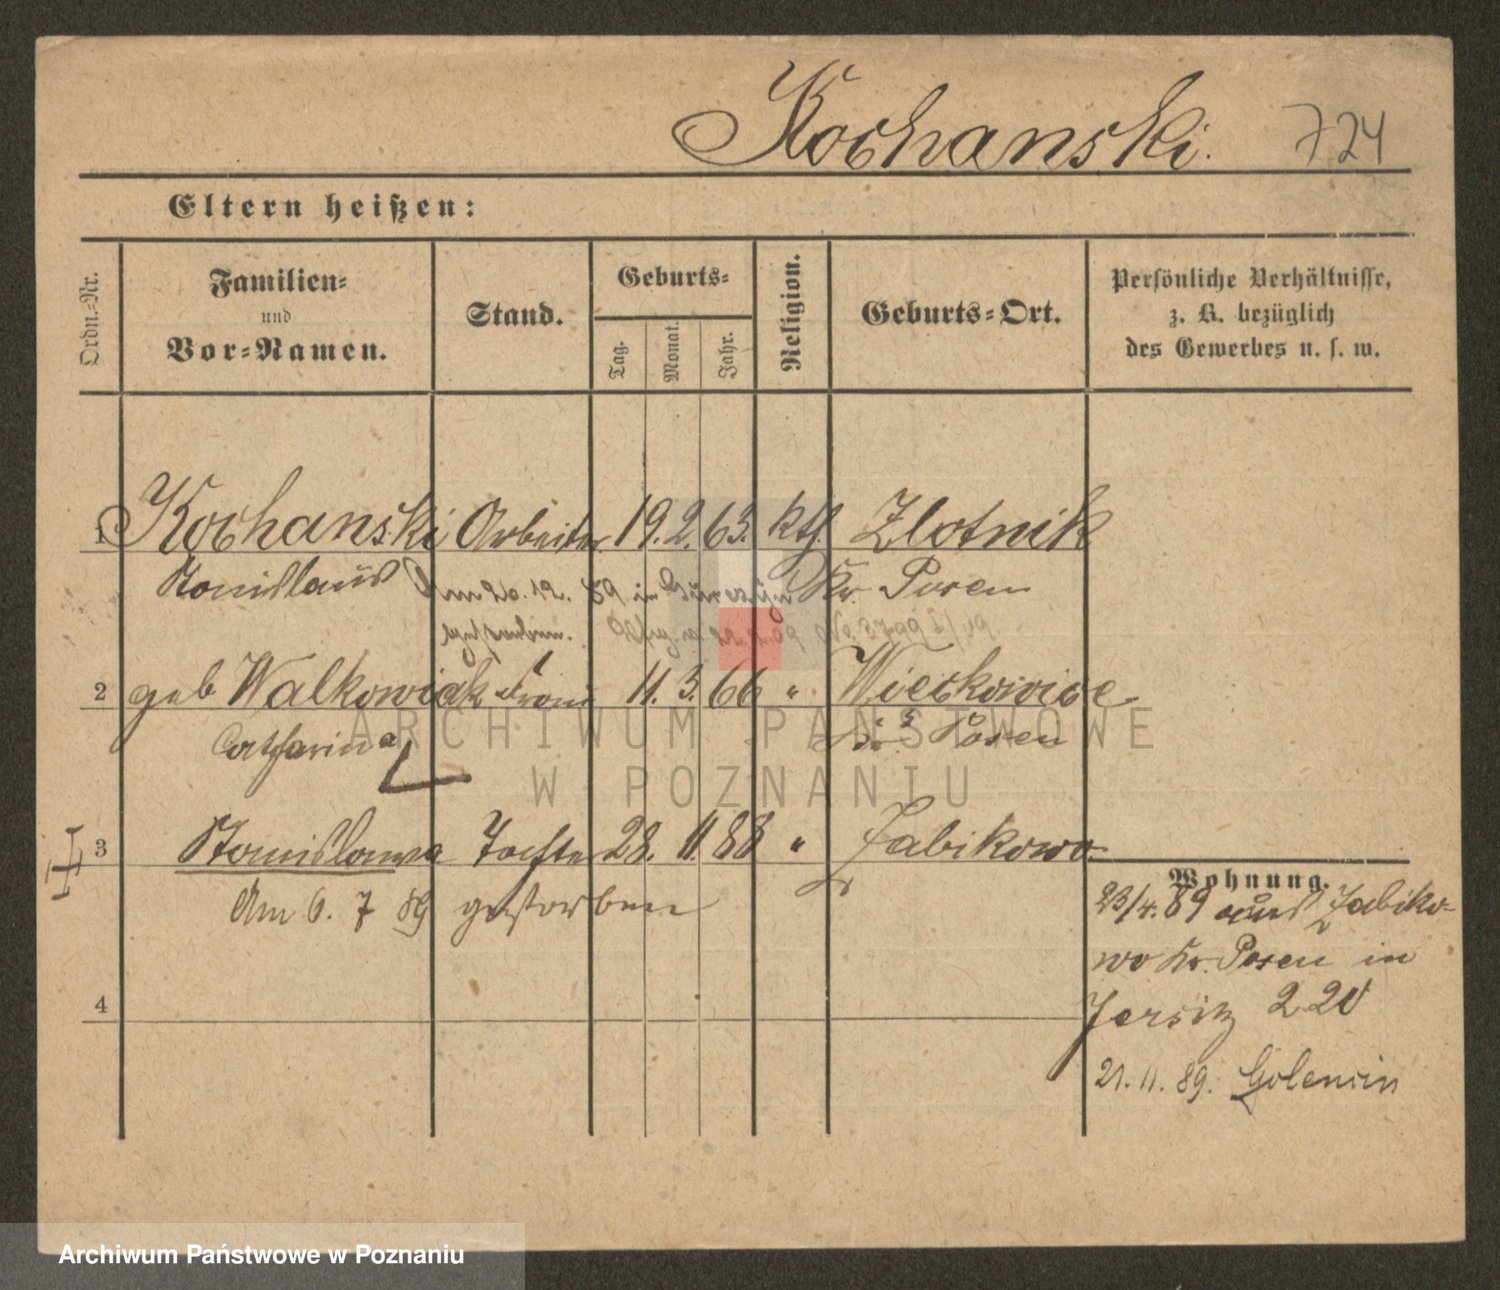 Kochanski. 724
Eltern heißen:
Ordn.-Nr.
Familien-
und
Vor-Namen.
Stand.
Geburts-
Tag.
Monat.
Jahr.
Religion.
Geburts-Ort.
Persönliche Verhältnisse,
z. B. bezüglich
des Gewerbes u. s. w.
1 Kochanski Arbeiter 19. 2. 63. kth. Zlotnik
Stanislaus Am 20. 12. 89 in Kr. Posen
gestorben.
2 geb Walkowiak Frau 11. 3. 66 " Wieckowice
Catharina Kr. Posen
3 Stanislawa Tochter 28. 11. 88 " Zabikowo
Am 6. 7 89 gestorben
Wohnung.
23/4. 89 aus Zabiko-
wo Kr. Posen in
Jersitz
4
21. 11. 89. Golencin
ARCHIWUM PAŃSTWOWE
W POZNANIU
Archiwum Państwowe w Poznaniu